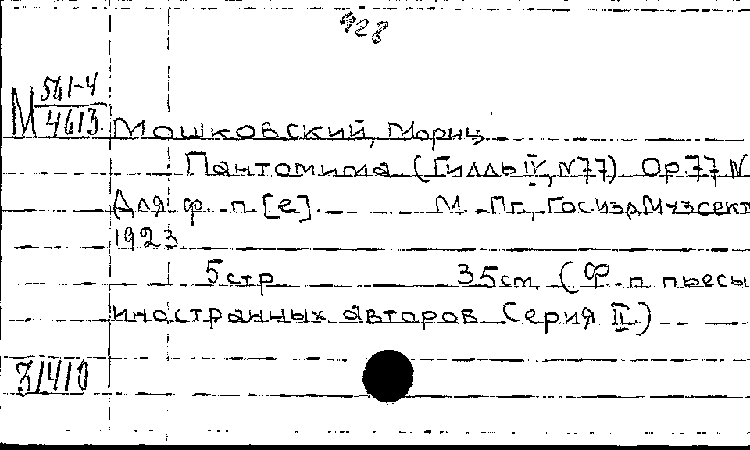 928
М 561-4
4613
Мошковский, Мориц
Пантомима (Гиллы IV, N77) Op 77 N
Для ф. п. [е]. М.-Пг., Госизд, Музсект
1923
5 стр 35 см (Ф. п пьесы
иностранных авторов Серия II.)
31410